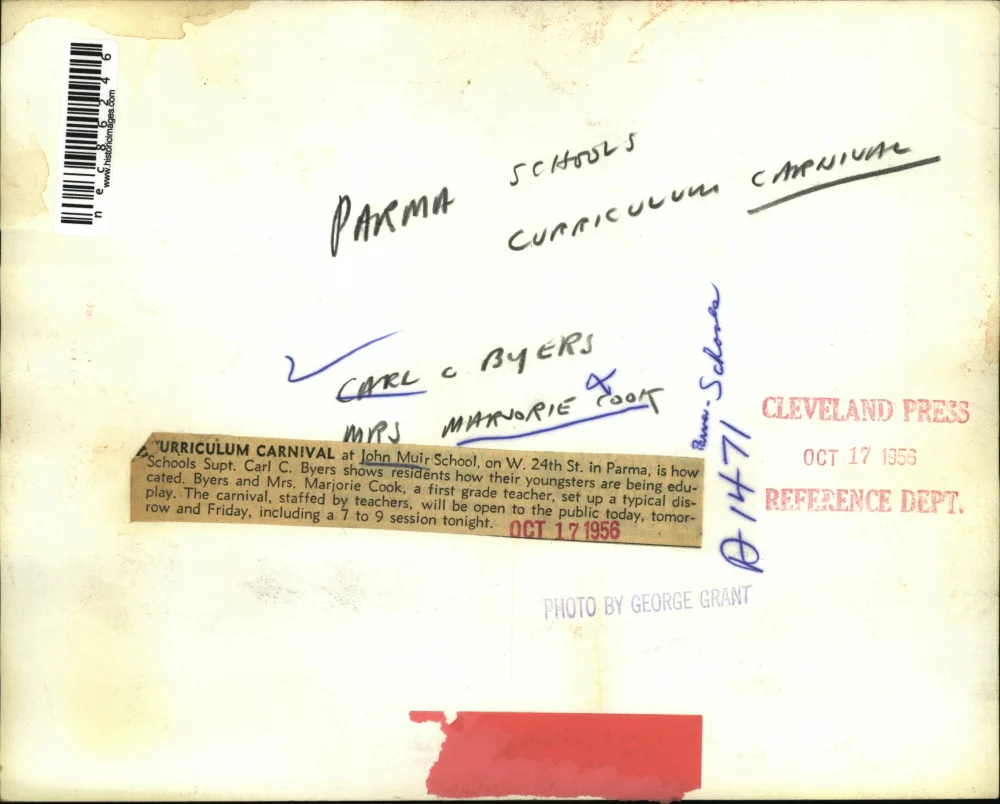 nec86246
www.historicimages.com
PARMA SCHOOLS
CURRICULUM CARNIVAL
CARL C BYERS
MRS MARJORIE COOK
CURRICULUM CARNIVAL at John Muir School, on W. 24th St. in Parma, is how
Schools Supt. Carl C. Byers shows residents how their youngsters are being edu-
cated. Byers and Mrs. Marjorie Cook, a first grade teacher, set up a typical dis-
play. The carnival, staffed by teachers, will be open to the public today, tomor-
row and Friday, including a 7 to 9 session tonight.
OCT 17 1956
Parma-Schools
A 1471
CLEVELAND PRESS
OCT 17 1956
REFERENCE DEPT.
PHOTO BY GEORGE GRANT